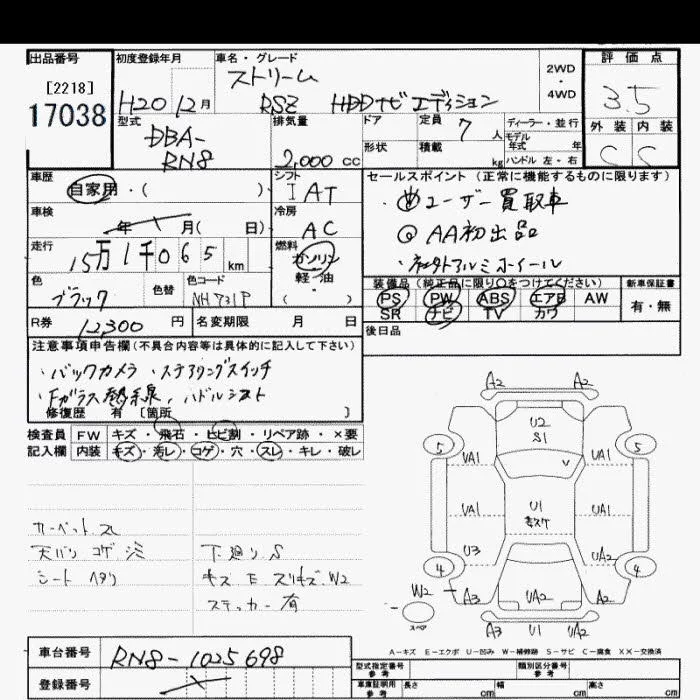 出品番号 初度登録年月 車名・グレード 評価点
[2218] 17038
H20 12月
ストリーム
RSZ HDDナビエディション
2WD・4WD
3.5
外装 内装
C C
型式 DBA-RN8
排気量 2,000 cc
ドア 定員 7人 ディーラー・並行
形状 積載 kg モデル年式 年
ハンドル 左・右
車歴 自家用・( )
シフト I AT
セールスポイント(正常に機能するものに限ります)
・ユーザー買取車
AA初出品
・社外アルミホイール
車検 年 月( 日)
冷房 AC
走行 15万1千065 km
燃料 ガソリン 軽・油 ( )
色 ブラック 色替 色コード NH731P
装備品(純正品に限り○をつけてください) 新車保証書
PS PW ABS エアB AW 有・無
SR ナビ TV カワ
R券 12,300円 名変期限 月 日
後日品
注意事項申告欄(不具合内容等は具体的に記入して下さい)
・バックカメラ・ステアリングスイッチ
・Fガラス熱線、ハドルシフト
修復歴 有 [箇所 ]
検査員 FW キズ・飛石・ヒビ割・リペア跡・×要
記入欄 内装 キズ・汚レ・コゲ・穴・スレ・キレ・破レ
カーペット スレ
天バリ コゲ シミ
シート ヘタリ
下廻り S
キズ E スリキズ W2
ステッカー有
A2 A2
U2
S1
5 5
UA1 V UA1
UA1 U1 UA1
U3 UA2
4 4
W2 A3 UA2 A2
スペア
A3 U1 UA2
A-キズ E-エクボ U-凹み W-補修跡 S-サビ C-腐食 XX-交換済
車台番号 RN8-1025698
登録番号
型式指定番号 参考 類別区分番号 参考
車庫証明用 参考 長さ cm 幅 cm 高さ cm